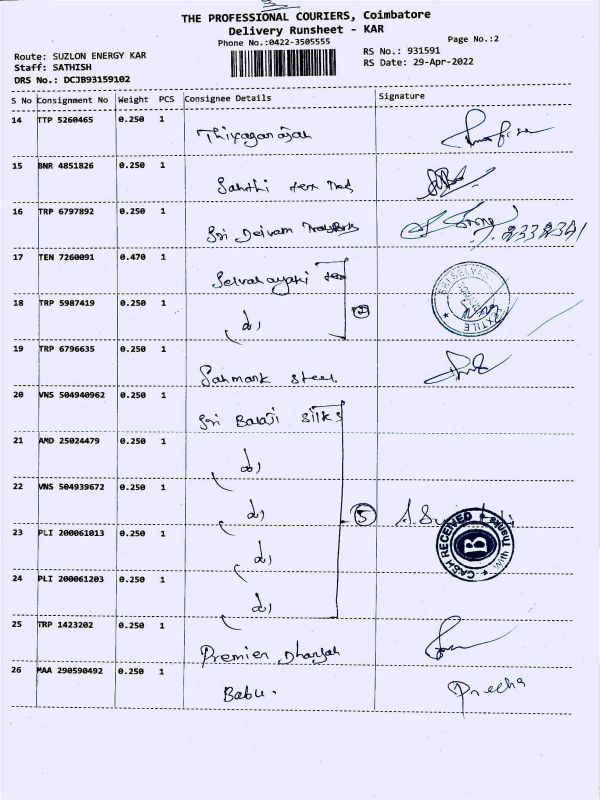 THE PROFESSIONAL COURIERS, Coimbatore
Delivery Runsheet - KAR
Phone No.:0422-3505555
Page No.:2
Route: SUZLON ENERGY KAR
RS No.: 931591
Staff: SATHISH
RS Date: 29-Apr-2022
DRS No.: DCJB93159102
S No Consignment No Weight PCS Consignee Details Signature
14 TTP 5260465 0.250 1
Thiyagarajah
15 BNR 4851826 0.250 1
Sakthi
16 TRP 6797892 0.250 1
Sri Deivam
17 TEN 7260091 0.470 1
Selvanayaki tex
18 TRP 5987419 0.250 1
2
TEXTILE
19 TRP 6796635 0.250 1
Sahmark steel
20 VNS 504940962 0.250 1
Sri Balaji Silks
21 AMD 25024479 0.250 1
22 VNS 504939672 0.250 1
5
CASH RECEIVED With Thanks
B
23 PLI 200061013 0.250 1
24 PLI 200061203 0.250 1
25 TRP 1423202 0.250 1
Premier
26 MAA 290590492 0.250 1
Babu.
Precha